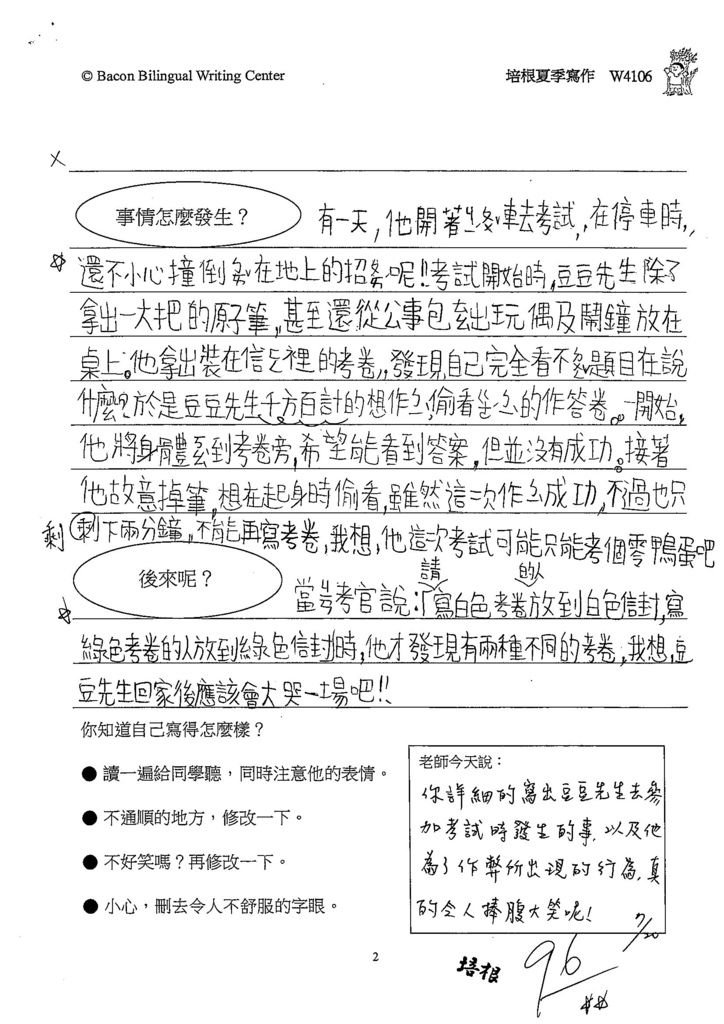 © Bacon Bilingual Writing Center
培根夏季寫作 W4106
事情怎麼發生？
有一天，他開著ㄐㄧㄠˋ車去考試，在停車時，
還不小心撞倒ㄉㄠˇ在地上的招ㄆㄞˊ呢!!考試開始時，豆豆先生除了
拿出一大把的原子筆，甚至還從公事包ㄋㄚˊ出玩偶及鬧鐘放在
桌上。他拿出裝在信ㄈㄥ裡的考卷，發現自己完全看不ㄉㄨㄥˇ題目在說
什麼？於是豆豆先生千方百計的想作ㄅㄧˋ，偷看ㄆㄤˊㄅㄧㄢ的作答卷。一開始，
他將身體ㄎㄠˋ到考卷旁，希望能看到答案，但並沒有成功。接著
他故意掉筆，想在起身時偷看，雖然這次作ㄅㄧˋ成功，不過也只
剩 剩下兩分鐘，不能再寫考卷，我想，他這次考試可能只能考個零鴨蛋吧
後來呢？
請 的人
當考官說：「寫白色考卷放到白色信封，寫
綠色考卷的人放到綠色信封」時，他才發現有兩種不同的考卷，我想，豆
豆先生回家後應該會大哭一場吧!!
你知道自己寫得怎麼樣？
● 讀一遍給同學聽，同時注意他的表情。
● 不通順的地方，修改一下。
● 不好笑嗎？再修改一下。
● 小心，刪去令人不舒服的字眼。
老師今天說：
你詳細的寫出豆豆先生去參
加考試時發生的事，以及他
為了作弊所出現的行為，真
的令人捧腹大笑呢!
7/20
2
培根
96